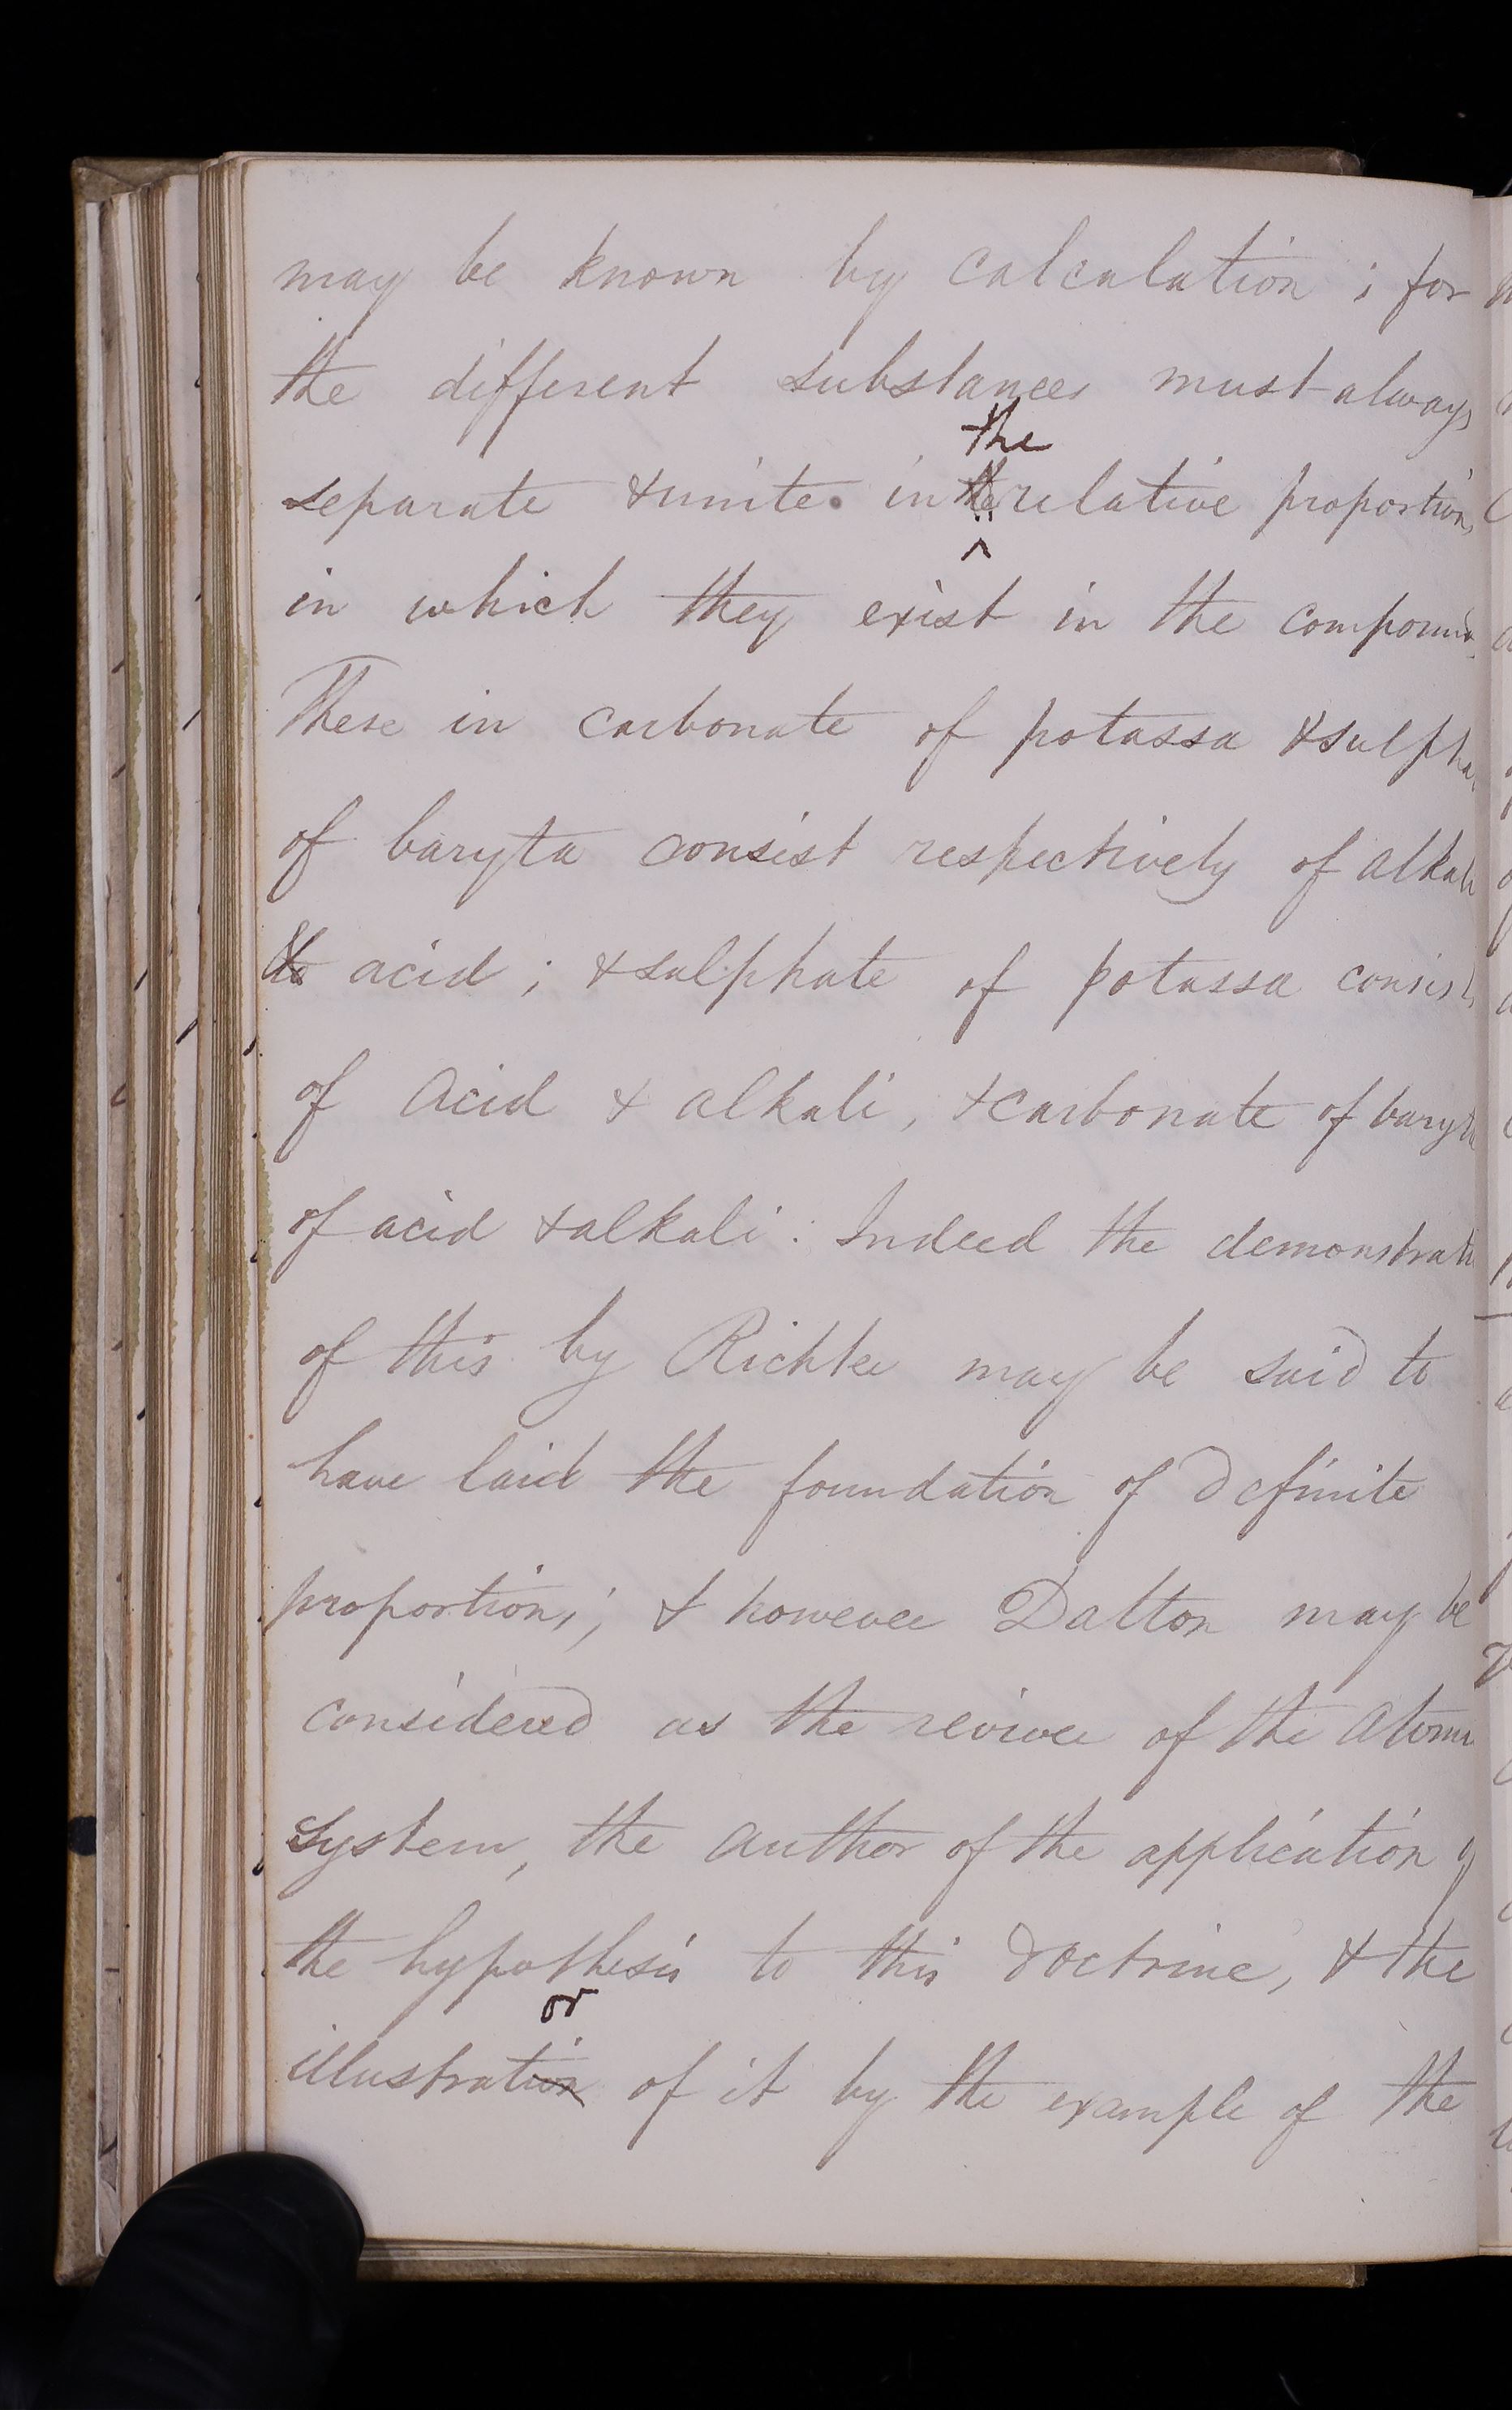 may be known by calculation ; for
the different substances must always
the
separate & unite in the relative proportions
^
in which they exist in the compound
These in carbonate of potassa & sulpha
of baryta consist respectively of alkali
& acid ; & sulphate of potassa consists
of acid & alkali, & carbonate of baryta
of acid & alkali : Indeed the demonstrati
of this by Richter may be said to
have laid the foundation of definite
proportions ; & however Dalton may be
considered as the reviver of the Atomi
System, the author of the application of
the hypothesis to this doctrine, & the
or
illustration of it by the example of the